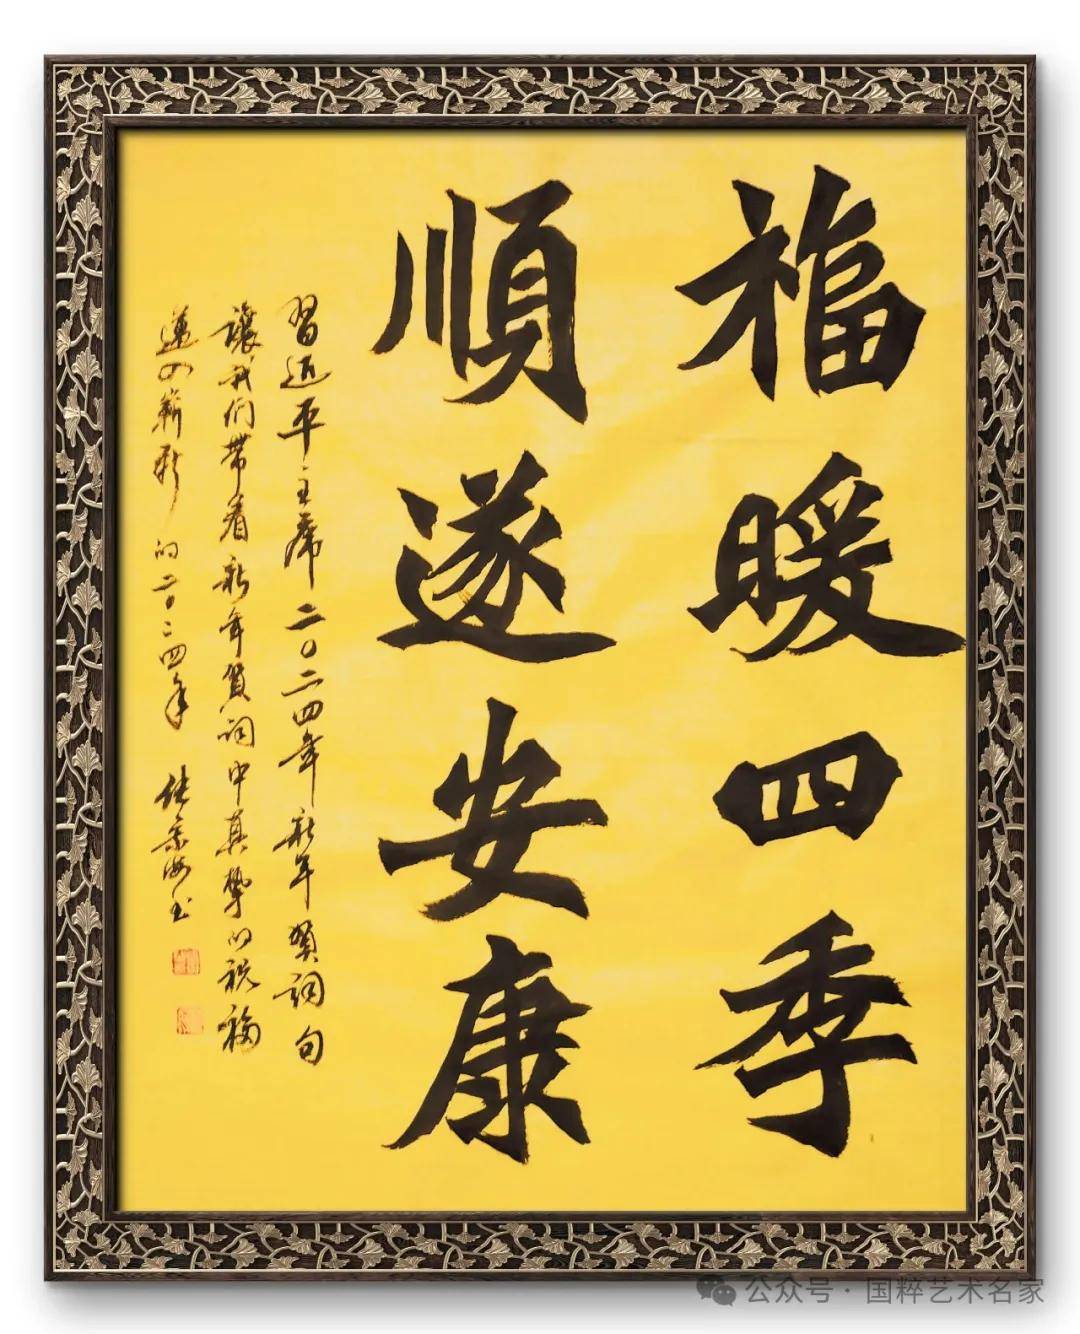 福暖四季
順遂安康
習近平主席二〇二四年新年賀詞句
讓我们带着新年賀词中真摯的祝福
进入崭新的二〇二四年
海书
公众号 · 国粹艺术名家